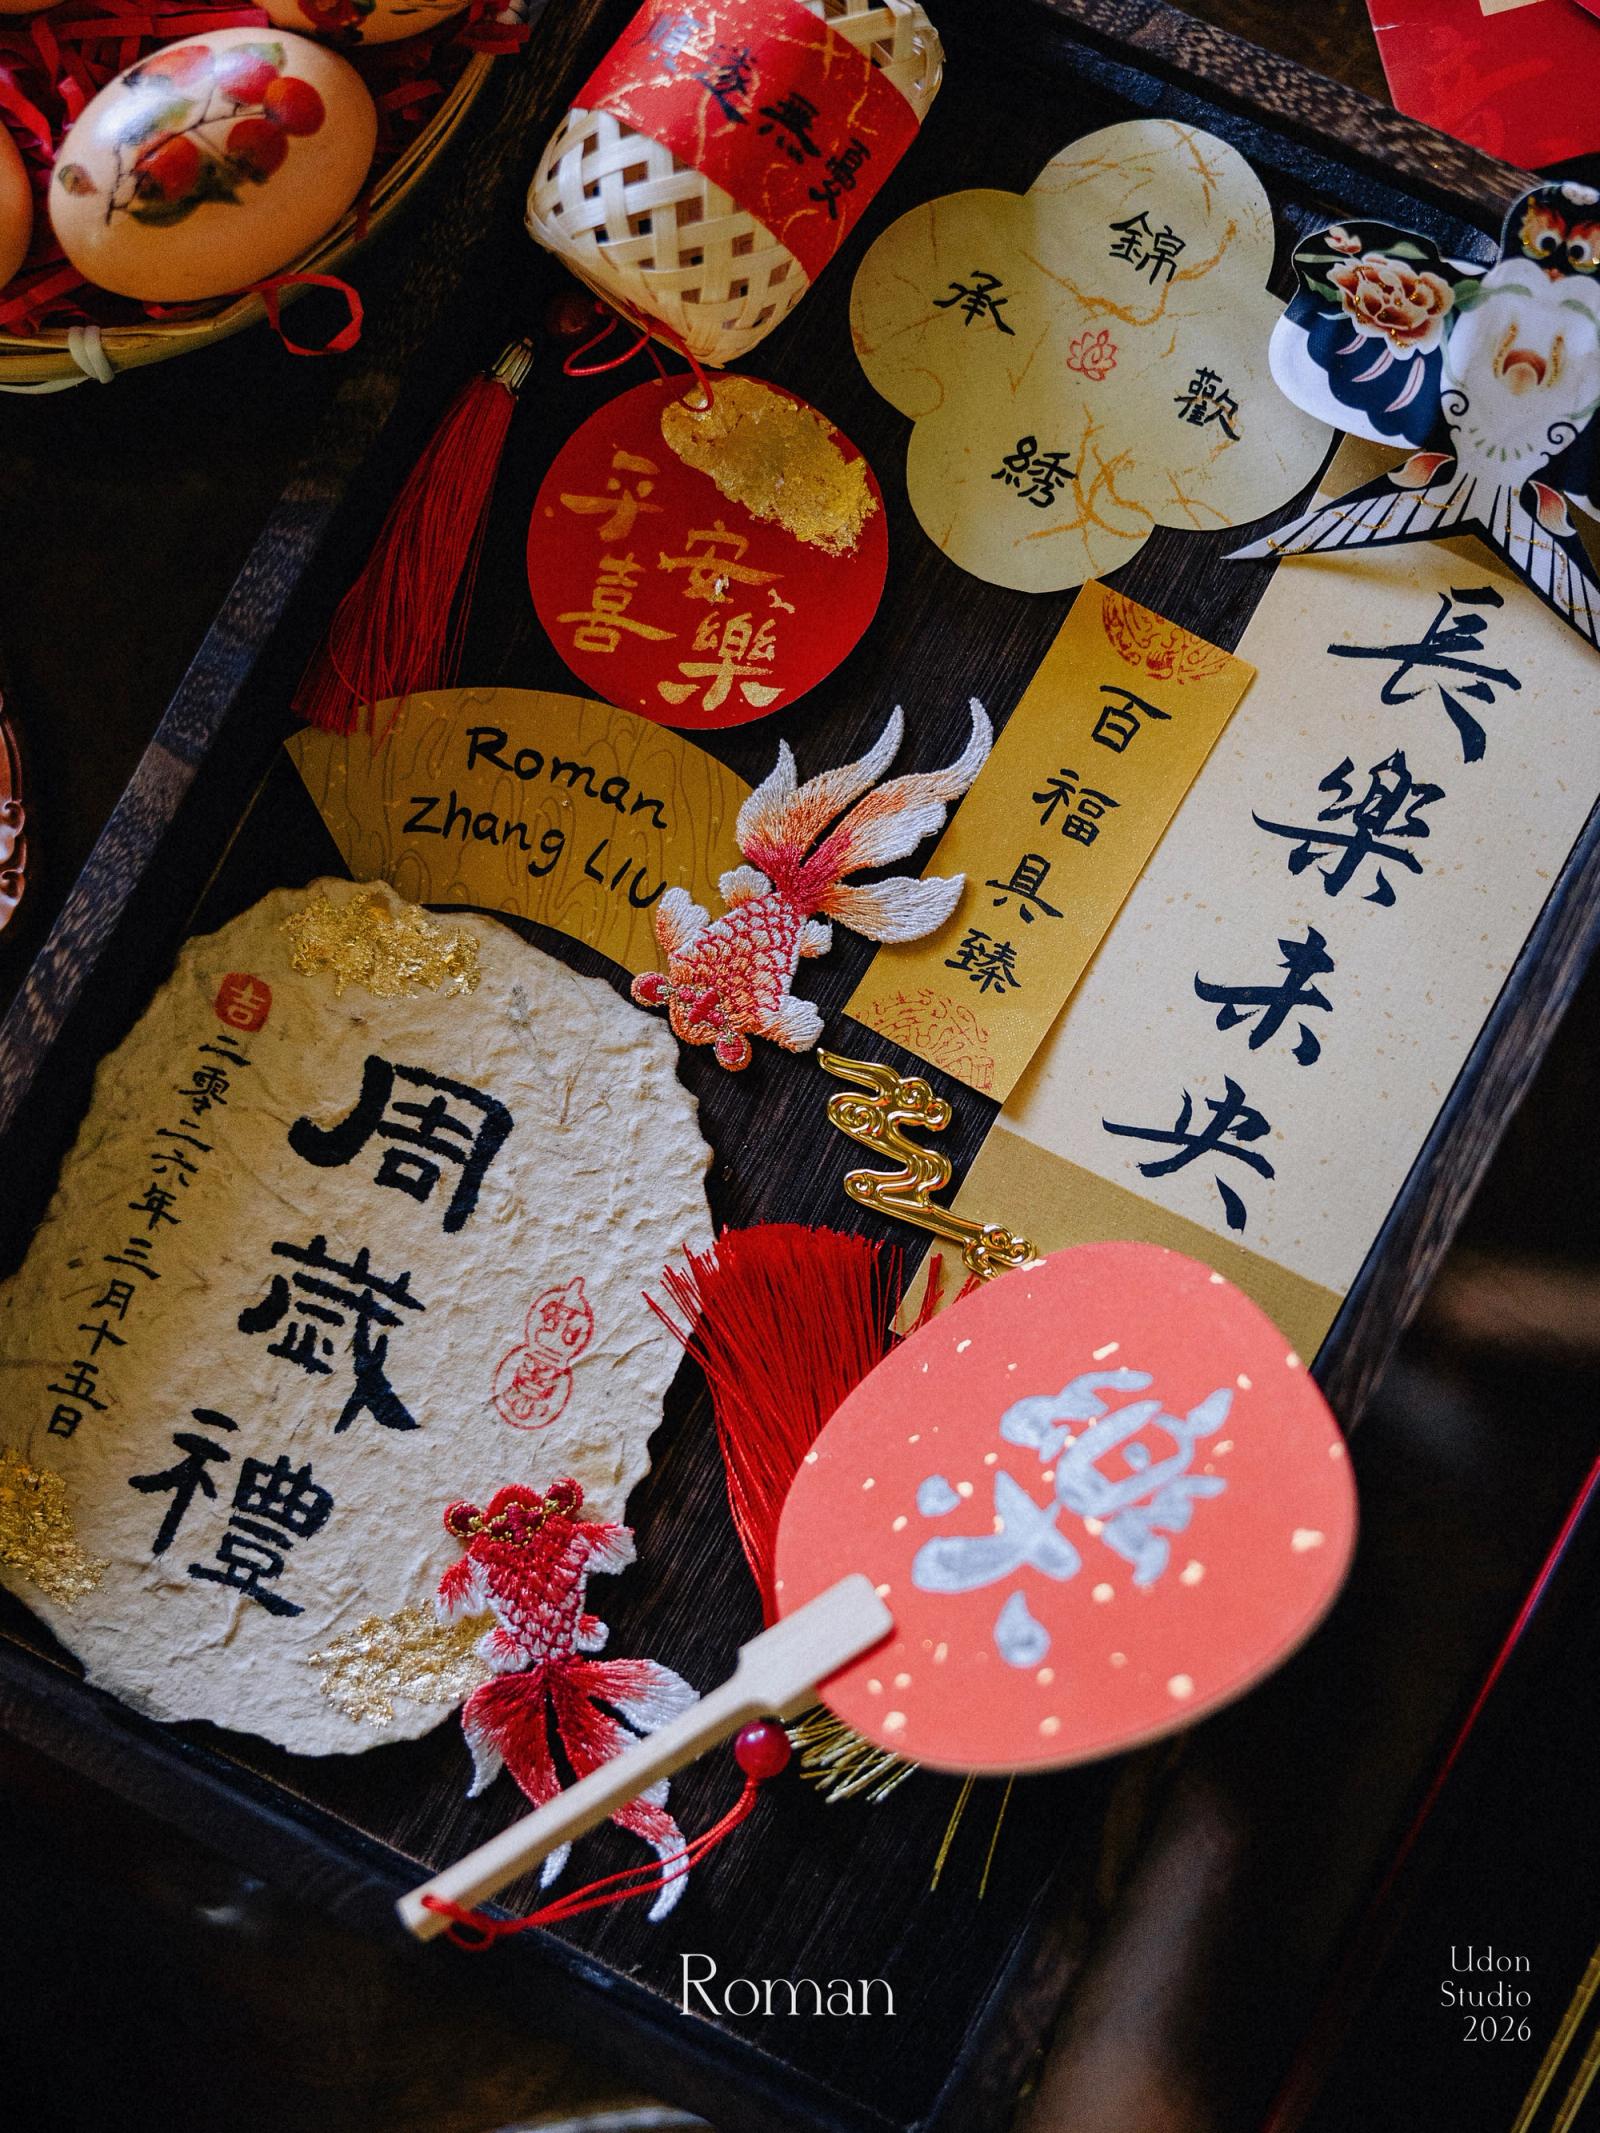 順遂無憂
錦
承
歡
綉
平安
喜樂
Roman
zhang LIU
百福具臻
長樂未央
吉
周歲禮
二零二六年三月十五日
Roman
Udon
Studio
2026